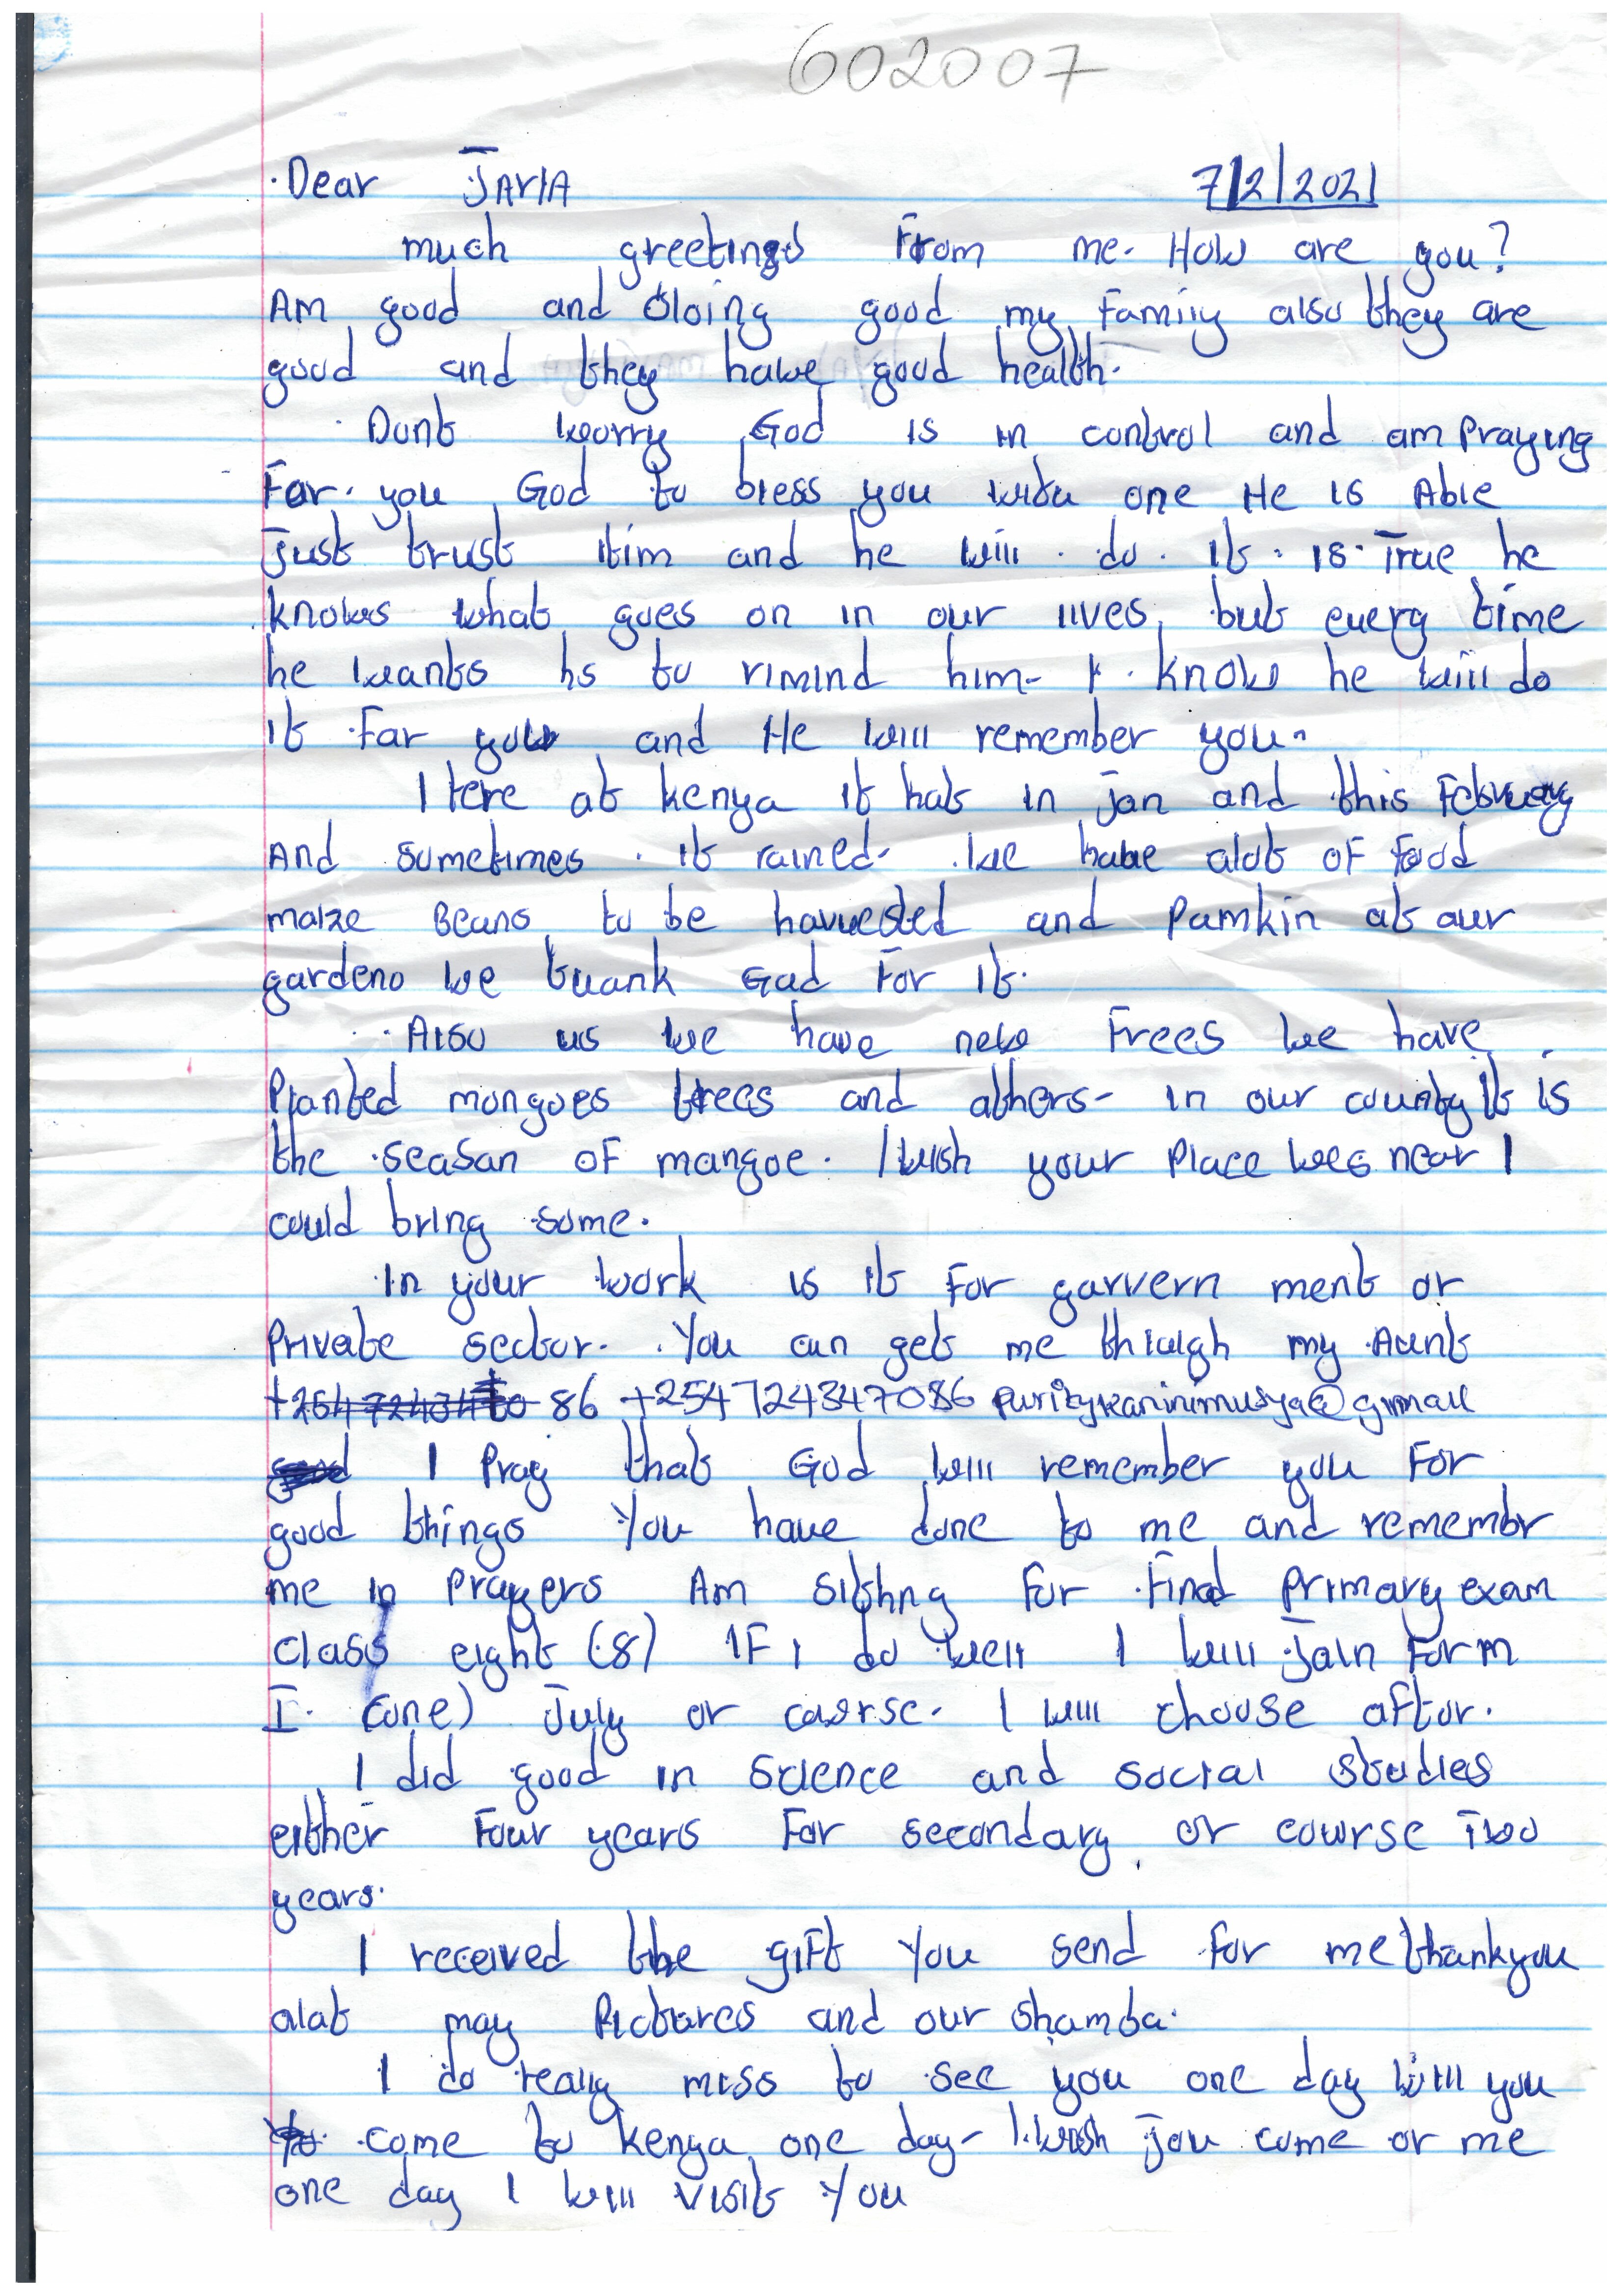 602007
Dear JAVIA 7/2/2021
much greetings From me. How are you?
Am good and doing good my Family also they are
good and they have good health.
Dont worry God is in control and am praying
For you God to bless you with one He is Able
Just trust Him and he will do. It is True he
knows what goes on in our lives, but every time
he wants us to rimind him. I know he will do
it For you and He will remember you.
Here at kenya it hat in jan and this February
And sometimes it rained. We have alot of food
maize Beans to be harvested and Pamkin at our
gardens we thank God For it.
Also us we have new Trees we have
Planted mongoes trees and others- in our county it is
the seasan of mangoe. I wish your Place was near I
could bring some.
In your work is it For garvern ment or
Private sector. You can get me through my Aunt
86 +254724347086 puritykaninimusya@gmail
I Pray that God will remember you For
good things You have done to me and remembr
me in Prayers Am sitting for Final primary exam
class eight (8) IF I do well I will Join Form
I. (one) July or course. I will choose after.
I did good in science and social studies
either Four years For secondary or course Two
years.
I received the gift You send for me thankyou
alot may Pictures and our shamba.
I do really miss to see you one day will you
come to kenya one day- I wish you come or me
one day I will visit You